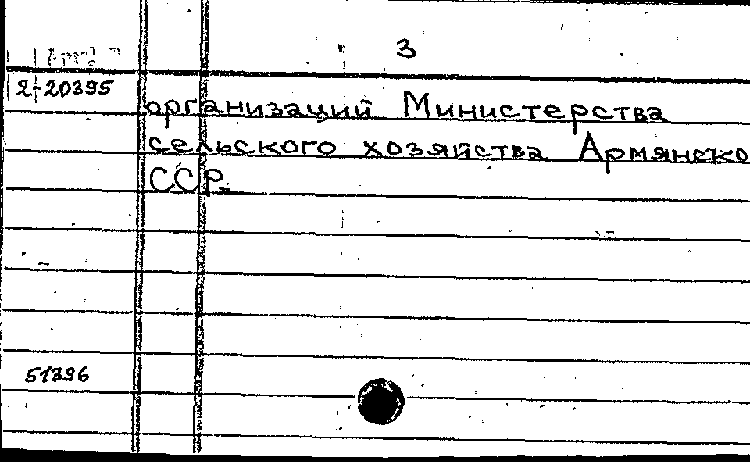 3
2-20395
организаций Министерства
сельского хозяйства Армянско
ССР.
51396